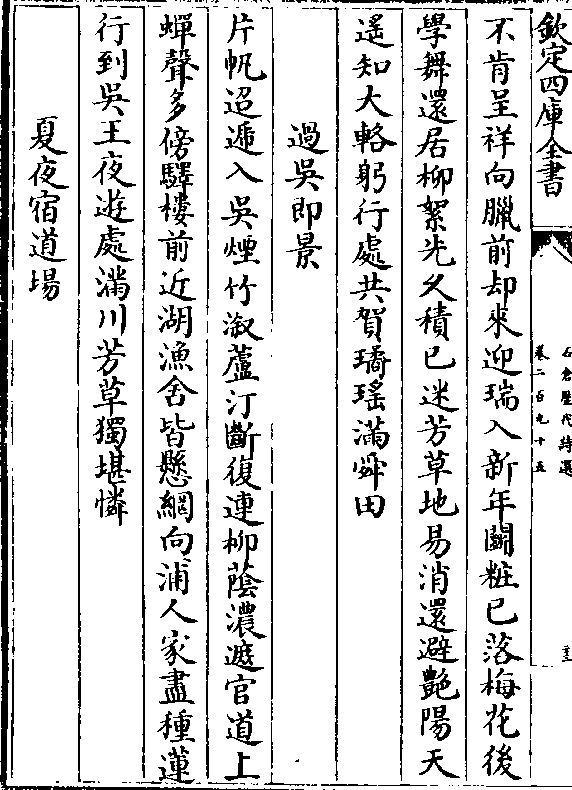 欽定四庫全書
石倉歷代詩選
卷二百九十五
不肯呈祥向臘前却來迎瑞入新年鬬粧已落梅花後
學舞還居柳絮先久積已迷芳草地易消還避艷陽天
遥知大輅躬行處共賀璚瑶滿舜田
過吳即景
片帆迢遞入吳煙竹溆蘆汀斷復連柳蔭濃遮官道上
蟬聲多傍驛樓前近湖漁舍皆懸網向浦人家盡種蓮
行到吳王夜遊處滿川芳草獨堪憐
夏夜宿道塲